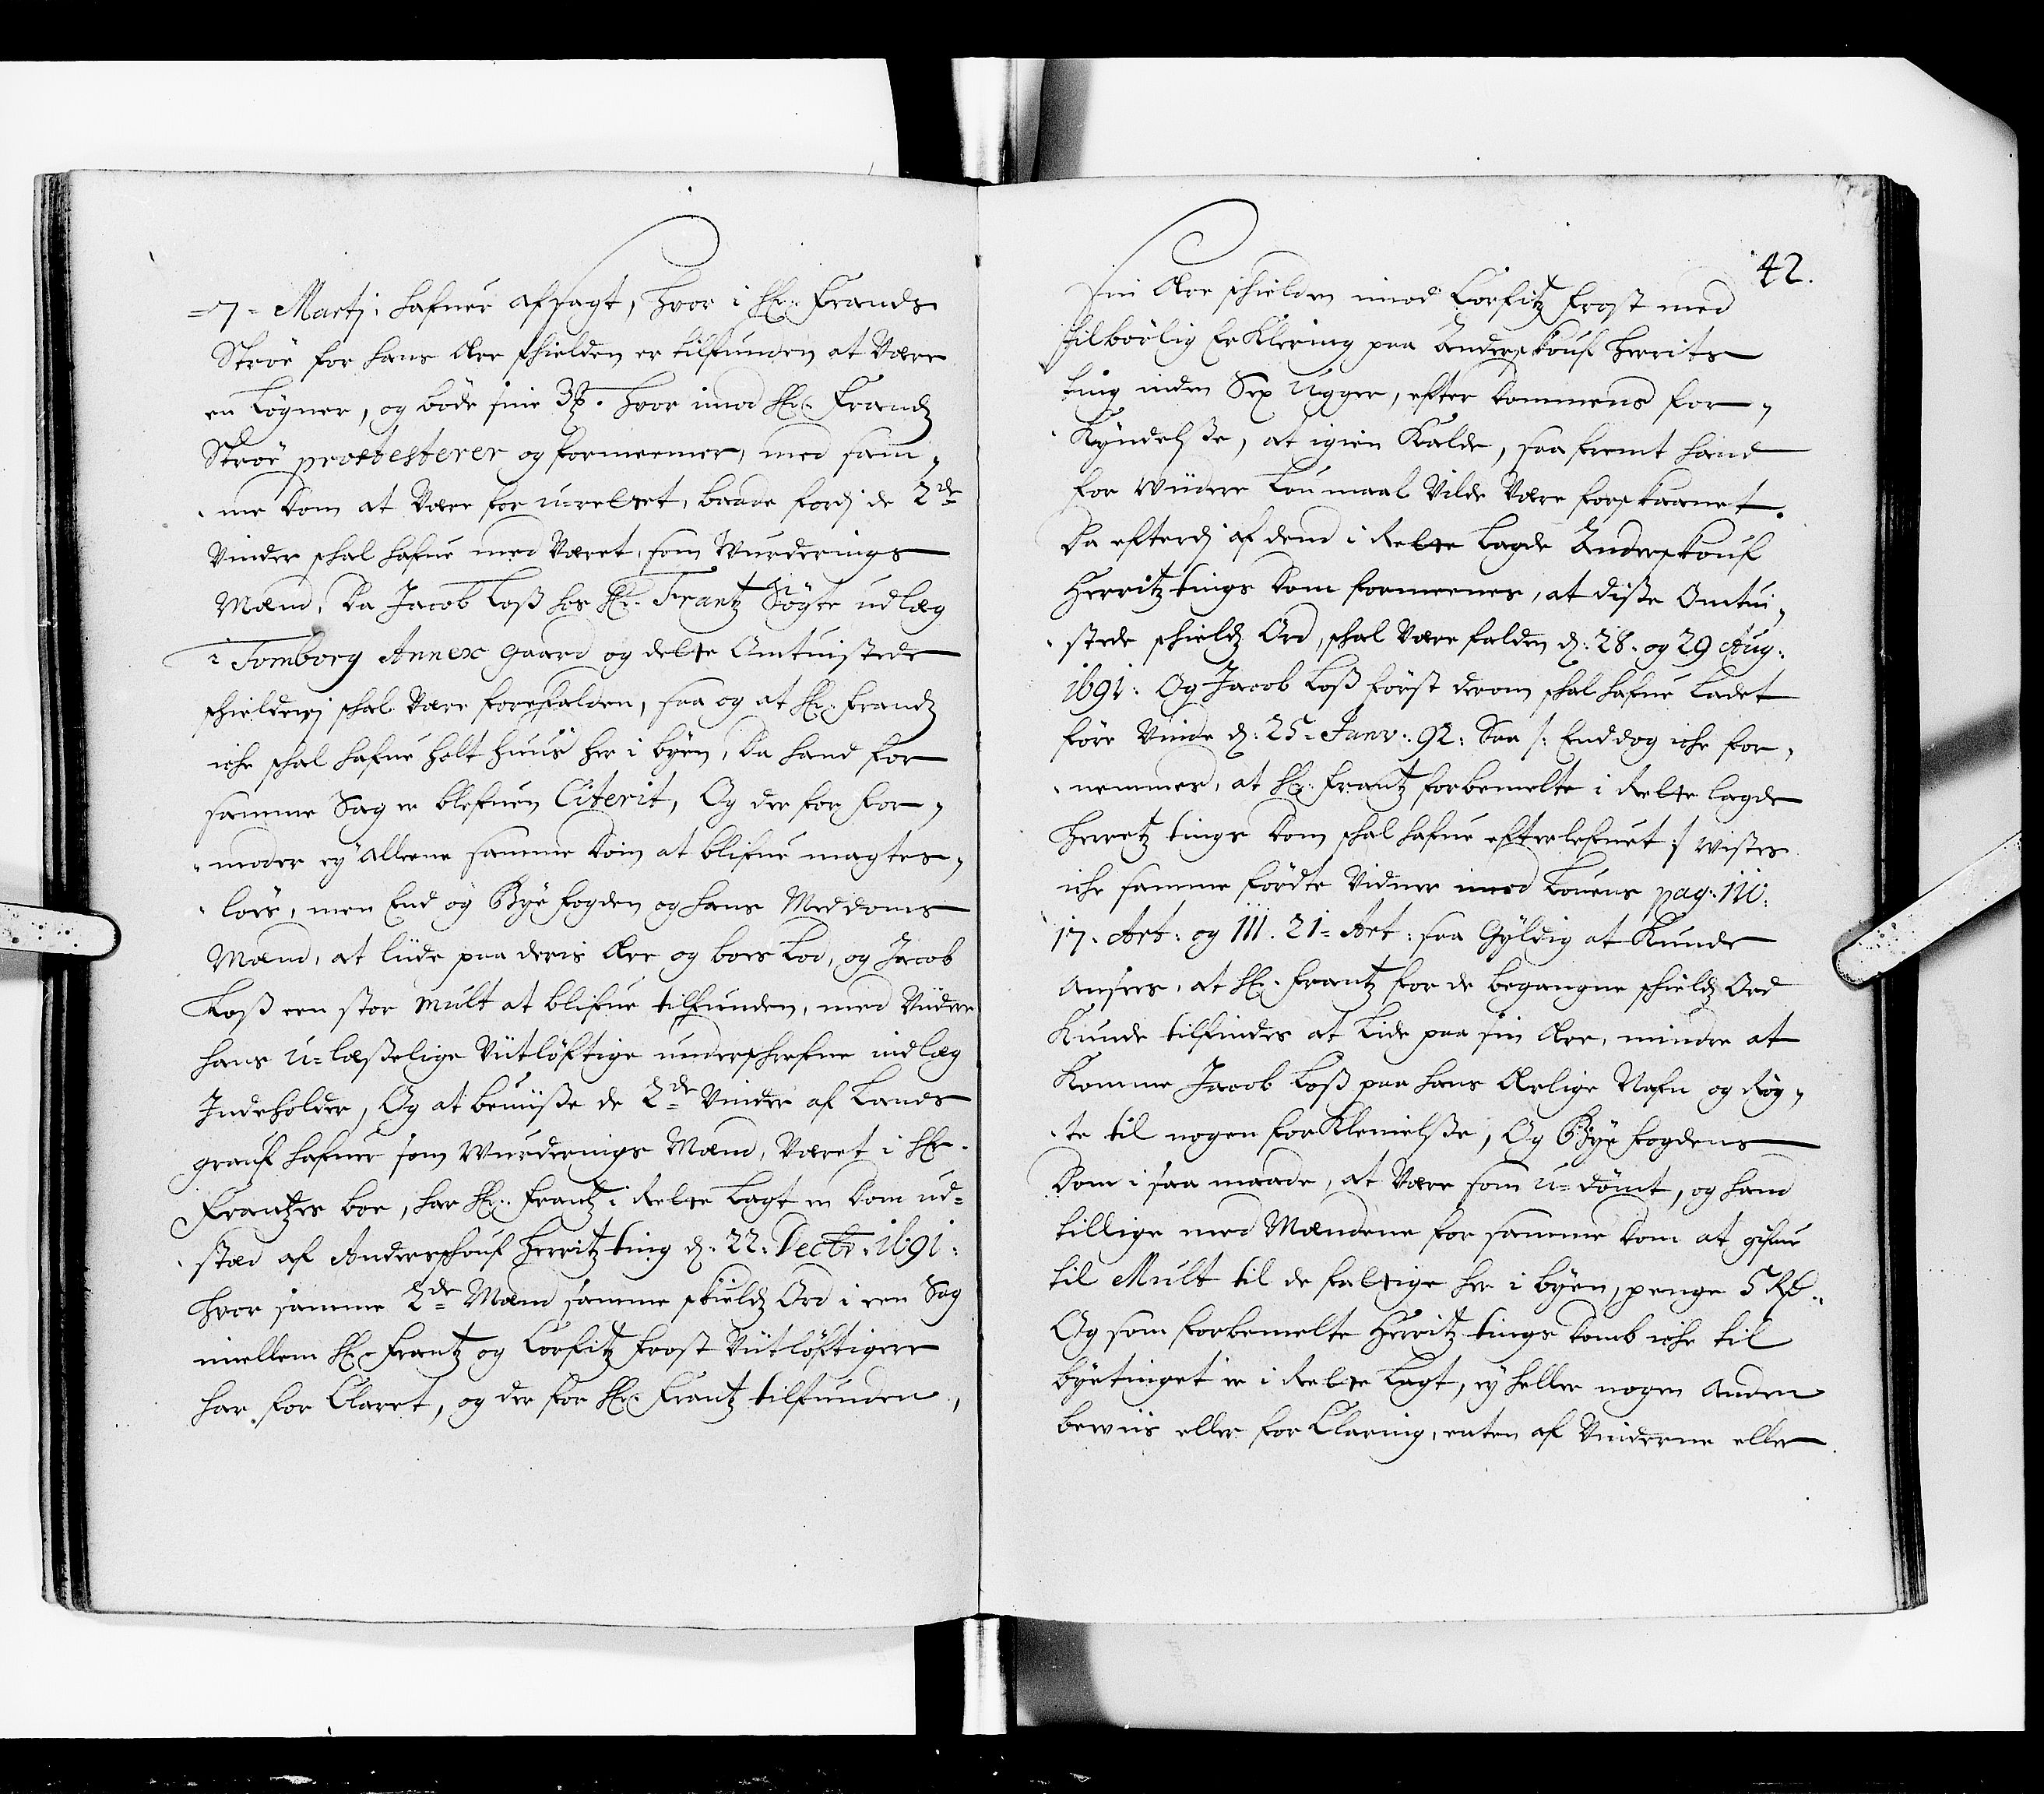 =7= Martj: hafuer afsagt, hvor i Hr: Frands
Stroe for hans Ære schielden er tilfunden at Være
en Løgner, og böde sine 3 ℔. hvor imod Hr: Frandz
Stroe protesterer og formeener, med sam-
me Dom at Være for u-rettet, baade fordj de 2de
Vinder schal hafue med Været, som Wurderings
Mænd, Da Jacob Loss hos Hr: Frantz Sögte udlæg
i Tomborg Annex gaard og dette Omtuistede
schielderj schal Være forefalden, saa og at Hr: Frandz
iche schal hafue holt huus her i byen, Da hand for
samme Sag er blefuen Citerit, Og der for for-
moder ey alleene samme Dom at blifue magtes-
loes, men End og Bye fogden og hans Meddoms
Mænd, at liide paa deris Ære og boes Lod, og Jacob
Loss een stor mult at blifue tilfunden, med Viidere
hans u-læsselige Viitlöftige underschrefne indlæg
Indeholder, Og at beuiisse de 2de Vinder af Lands
grauf hafuer som Wurderings Mænd, Været i Hr:
Frantzes boe, har Hr: Frantz i Rette Lagt en Dom ud-
stæd af Anderschouf Herritz ting d: 22: Decbr: 1691:
hvor samme 2de Mænd samme skieldz Ord i een Sag
imellem Hr: Frantz og Corfitz Frost Viitlöftigere
har for Claret, og der for Hr: Frantz tilfunden,
42.
sin Ære schielden imod Corfitz Frost med
tilbörlig Er Klering paa Anderskouf Herrits
ting inden Sex Ugger, efter Dommens for-
Kyndelsse, at igien Kalde, saa fremt hand
for Wiidere Lou maal Vilde Være forskaanet.
Da efterdj af dend i Rette Lagde Anderskouf
Herritz tings Dom formeenes, at disse Omtui-
stede schieldz Ord, schal Være falden d: 28. og 29 Aug:
1691: Og Jacob Loss först derom schal hafue Ladet
före Vinde d: 25= Janv: 92: Saa /: Enddog iche for-
nemmes, at Hr: Frantz forbemelte i Rette lagde
Herretz tings Dom schal hafue efterlefuet :/ Wistes
iche samme fördte Vidner imod Louens pag: 110:
17. Art: og 111. 21= Art: saa Gyldig at Kunde
Ansees, at Hr: Frantz for de begangne schieldz Ord
Kunde tilfindes at Lide paa sin Ære, mindre at
Komme Jacob Loss paa hans Ærlige Nafn og Røg-
te til nogen for Klenelsse, Og Bye fogdens
Dom i saa maade, at Være som u=dömt, og hand
tillige med Mændene for samme Dom at gifue
til Mult til de fattige her i byen, penge 5 Rd:
Og som forbemelte Herritz tings Domb iche til
byetinget er i Rette Lagt, ey heller nogen anden
bewiis eller for Claring, enten af Vinderne eller